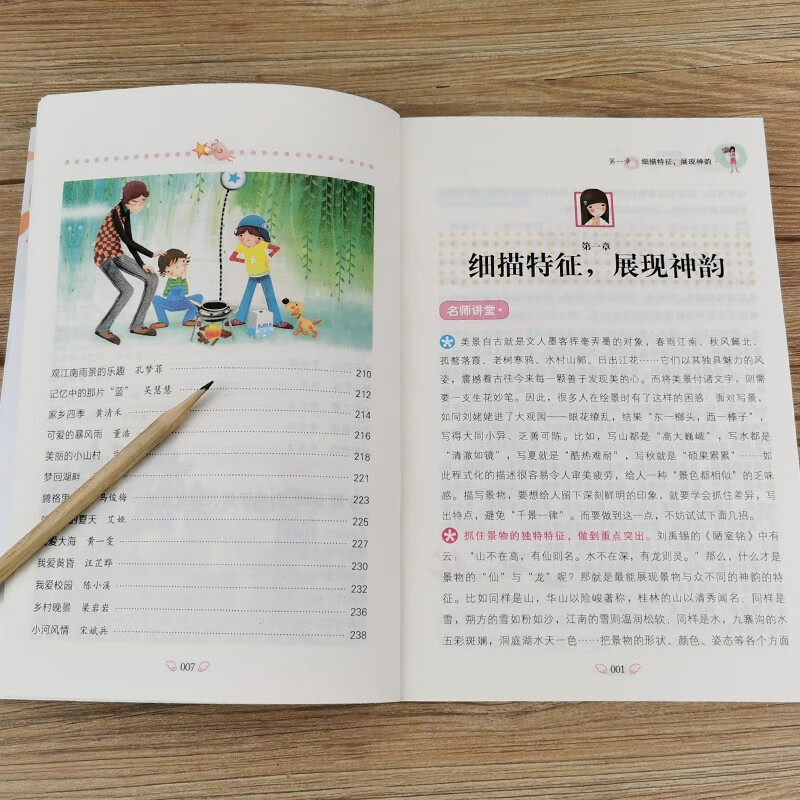 观江南雨景的乐趣 孔梦菲 210
记忆中的那片“蓝” 吴慧慧 212
家乡四季 黄清禾 214
可爱的暴风雨 董浩 216
美丽的小山村 218
梦回湖畔 221
骑格里 马俊梅 223
的夏天 艾娅 225
爱大海 黄一雯 227
我爱黄昏 汪芷晔 230
我爱校园 陈小溪 232
乡村晚景 梁岩岩 236
小河风情 宋斌兵 238
007
第一章 细描特征,展现神韵
第一章
细描特征,展现神韵
名师讲堂
美景自古就是文人墨客挥毫弄墨的对象,春雨江南、秋风冀北、
孤鹜落霞、老树寒鸦、水村山郭、日出江花……它们以其独具魅力的风
姿,震撼着古往今来每一颗善于发现美的心。而将美景付诸文字,则需
要一支生花妙笔。因此,很多人在绘景时有了这样的困惑:面对写景,
如同刘姥姥进了大观园——眼花缭乱,结果“东一榔头,西一棒子”,
写得大同小异、乏善可陈。比如,写山都是“高大巍峨”,写水都是
“清澈如镜”,写夏就是“酷热难耐”,写秋就是“硕果累累”……如
此程式化的描述很容易令人审美疲劳,给人一种“景色都相似”的乏味
感。描写景物,要想给人留下深刻鲜明的印象,就要学会抓住差异,写
出特点,避免“千景一律”。而要做到这一点,不妨试试下面几招。
抓住景物的独特特征,做到重点突出。刘禹锡的《陋室铭》中有
云:“山不在高,有仙则名。水不在深,有龙则灵。”那么,什么才是
景物的“仙”与“龙”呢?那就是最能展现景物与众不同的神韵的特
征。比如同样是山,华山以险峻著称,桂林的山以清秀闻名;同样是
雪,朔方的雪如粉如沙,江南的雪则温润松软;同样是水,九寨沟的水
五彩斑斓,洞庭湖水天一色……把景物的形状、颜色、姿态等各个方面
001